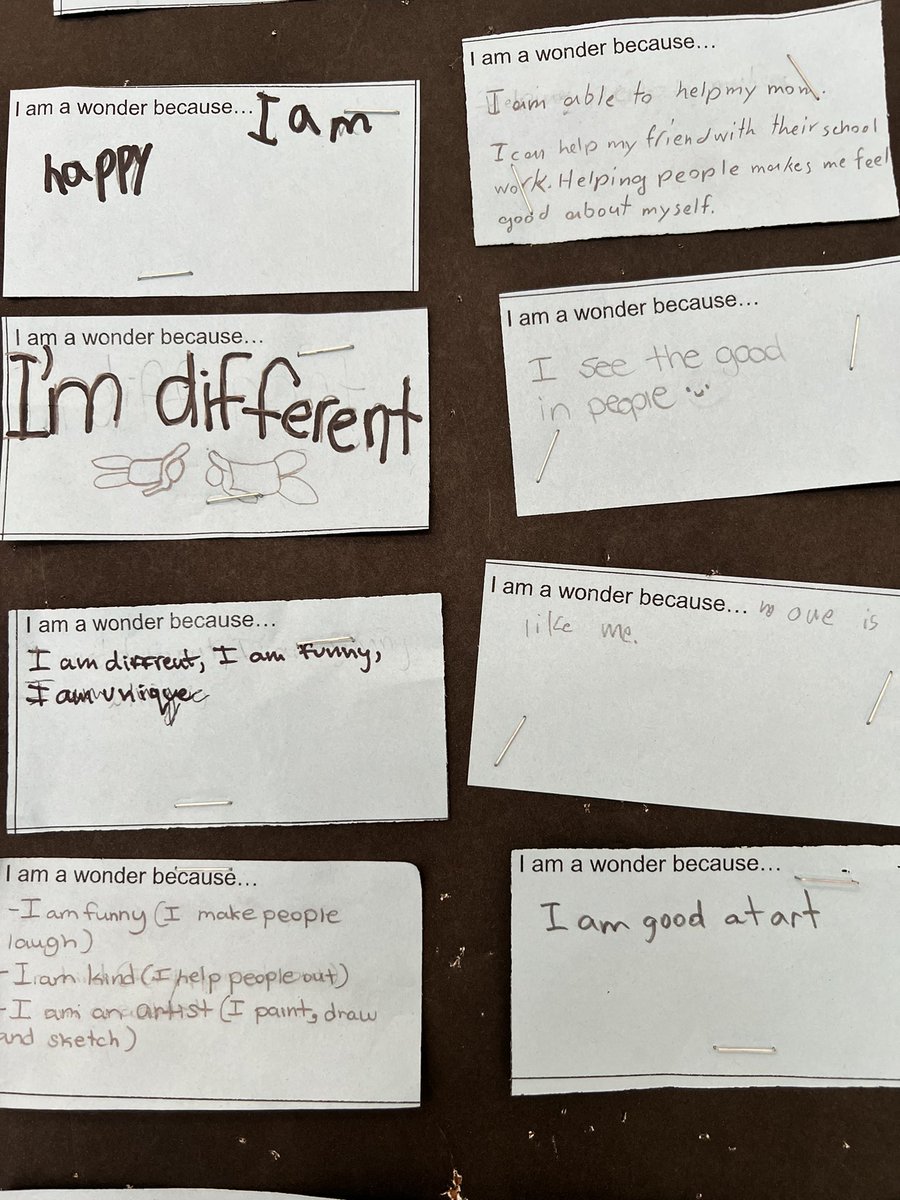 I am a wonder because... I am
happy
I am a wonder because...
I am able to help my mom.
I can help my friend with their school
work. Helping people makes me feel
good about myself.
I am a wonder because...
I'm different
I am a wonder because...
I see the good
in people
I am a wonder because...
I am diffrent, I am funny,
I am unique
I am a wonder because... no one is
like me.
I am a wonder because...
-I am funny (I make people
laugh)
-I am kind (I help people out)
-I am an artist (I paint, draw
and sketch)
I am a wonder because...
I am good at art